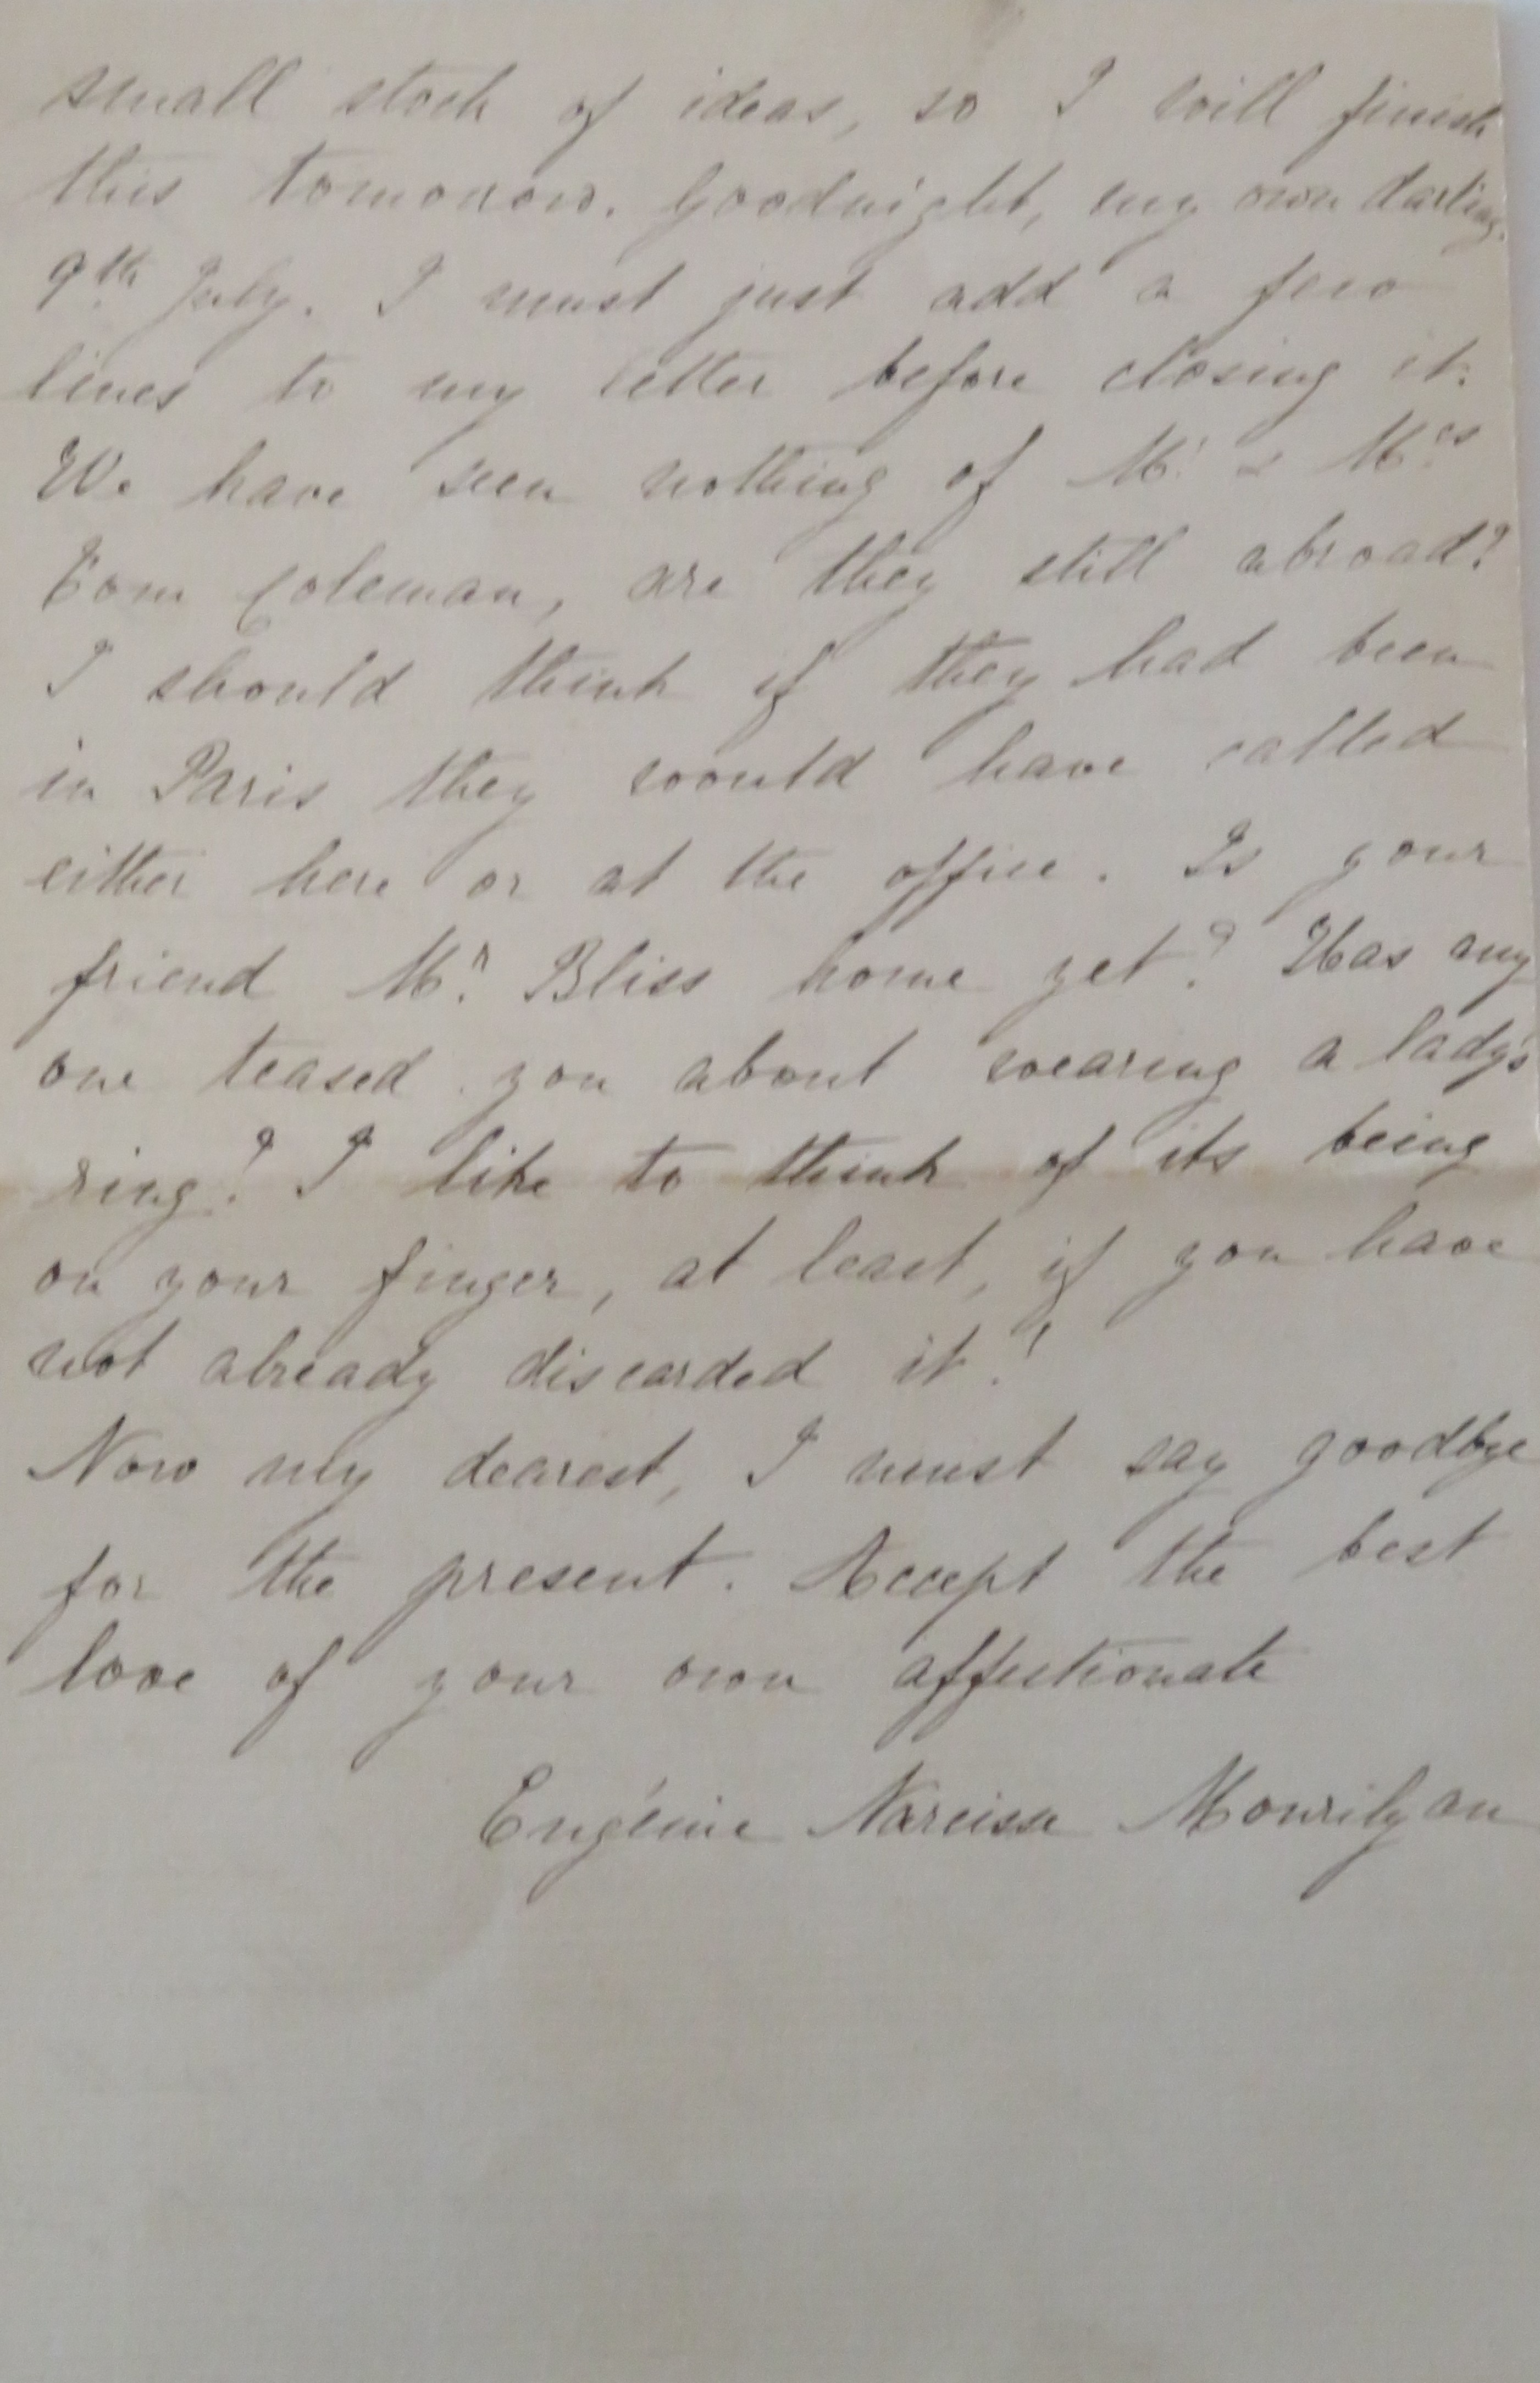 small stock of ideas, so I will finish
this tomorrow. Goodnight, my own darling.
9th July. I must just add a few
lines to my letter before closing it.
We have seen nothing of Mr & Mrs
Tom Coleman, are they still abroad?
I should think if they had been
in Paris they would have called
either here or at the office. Is your
friend Mr. Bliss home yet? Has any
one teased you about wearing a lady's
ring? I like to think of its being
on your finger, at least, if you have
not already discarded it!
Now my dearest, I must say goodbye
for the present. Accept the best
love of your own affectionate
Eugénie Narcisse Mourilyan